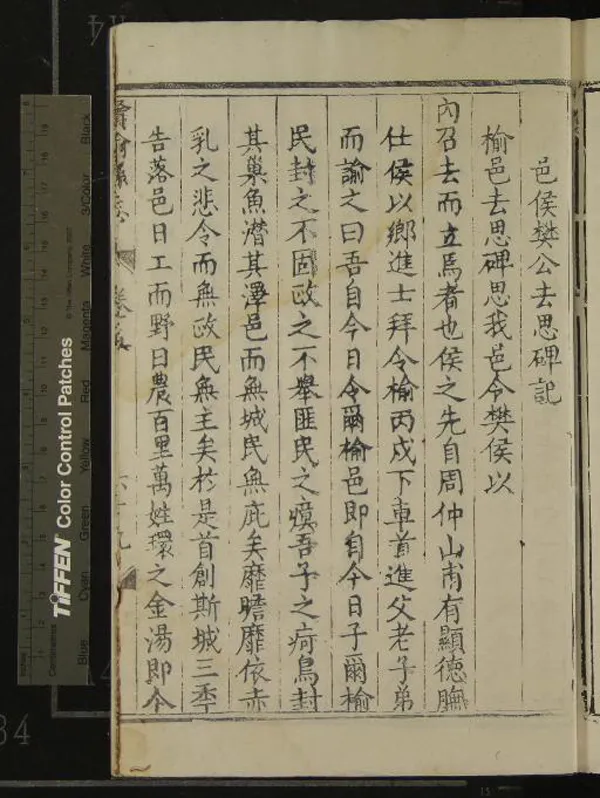 邑侯樊公去思碑記
榆邑去思碑思我邑令樊侯以
內召去而立焉者也侯之先自周仲山甫有顯德膴
仕侯以鄉進士拜令榆丙戍下車首進父老子弟
而諭之曰吾自今日令爾榆邑即自今日子爾榆
民封之不固政之不舉匪民之瘼吾子之疴鳥封
其巢魚潛其澤邑而無城民無庇矣靡瞻靡依赤
乳之悲令而無政民無主矣於是首創斯城三秊
告落邑日工而野日農百里萬姓環之金湯即今
六十九
TIFFEN Color Control Patches
© The Tiffen Company, 2007
Blue
Cyan
Green
Yellow
Red
Magenta
White
3/Color
Black
Centimetres